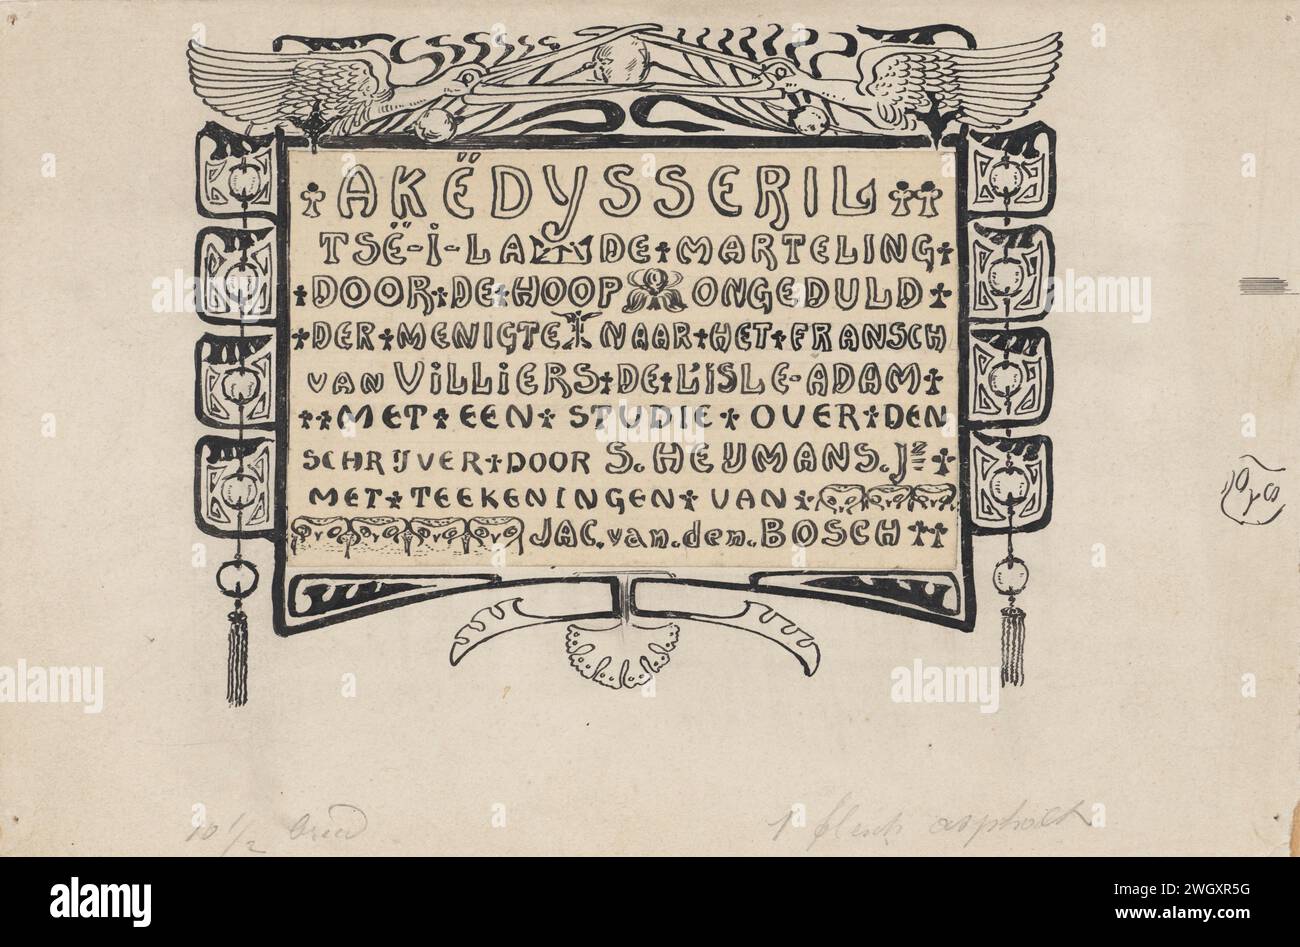 AKËDYSSERIL
TSË-I-LA DE MARTELING
DOOR DE HOOP ONGEDULD
DER MENIGTE NAAR HET FRANSCH
VAN VILLIERS DE L'ISLE-ADAM
MET EEN STUDIE OVER DEN
SCHRIJVER DOOR S. HEIJMANS. Jz
MET TEEKENINGEN VAN
JAC. van. den. BOSCH
10 1/2 breed
1 flesch asphalt
alamy
Image ID: 2WGXR5G
www.alamy.com